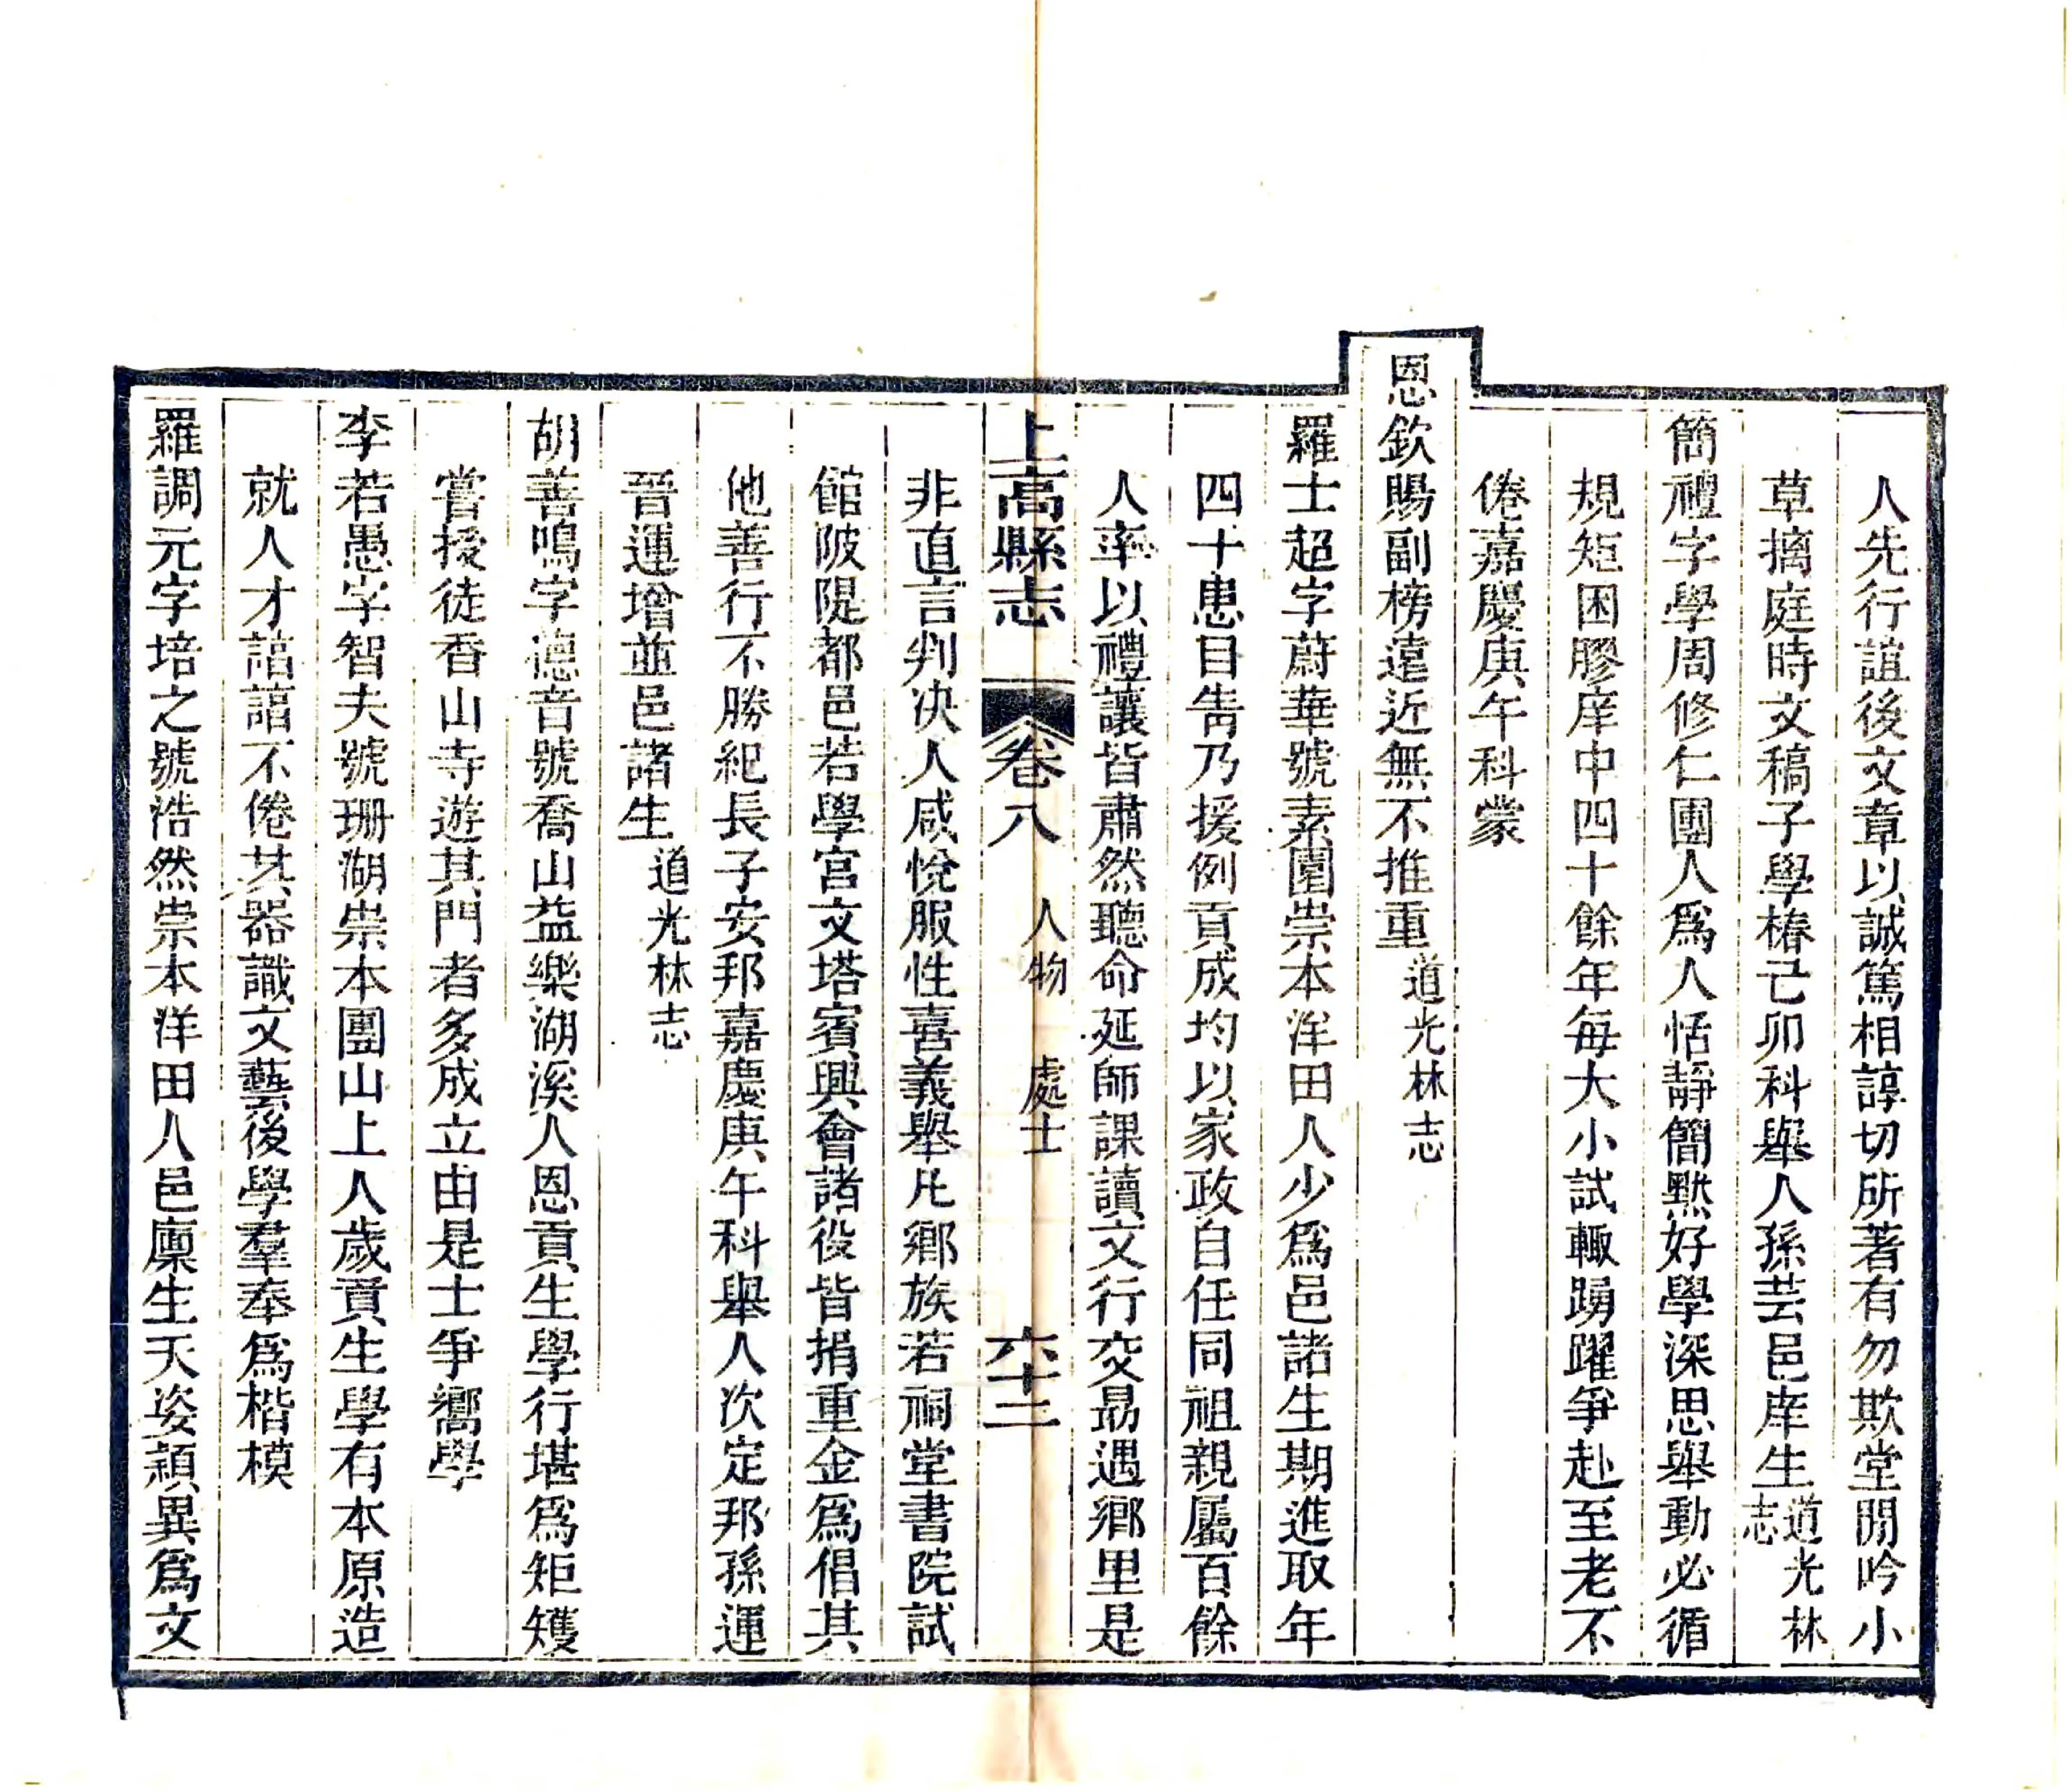 人先行誼後文章以誠篤相諄切所著有勿欺堂閒吟小
草摛庭時文稿子學椿己卯科舉人孫芸邑庠生道光林志
簡禮字學周修仁團人爲人恬靜簡默好學深思舉動必循
規矩困膠庠中四十餘年每大小試輒踴躍爭赴至老不
倦嘉慶庚午科蒙
恩欽賜副榜遠近無不推重道光林志
羅士超字蔚華號素園崇本洋田人少爲邑諸生期進取年
四十患目眚乃援例貢成均以家政自任同祖親屬百餘
人率以禮讓皆肅然聽命延師課讀文行交勗遇鄉里是
上高縣志 卷八 人物 處士 六十二
非直言判决人咸悅服性喜義舉凡鄉族若祠堂書院試
館陂隄都邑若學宮文塔賓興會諸役皆捐重金爲倡其
他善行不勝紀長子安邦嘉慶庚午科舉人次定邦孫運
晉運增並邑諸生道光林志
胡善鳴字德音號喬山益樂湖溪人恩貢生學行堪爲矩矱
嘗授徒香山寺遊其門者多成立由是士爭嚮學
李若愚字智夫號珊湖崇本團山上人歲貢生學有本原造
就人才諳諳不倦其器識文藝後學羣奉爲楷模
羅調元字培之號浩然崇本洋田人邑廩生天姿穎異爲文